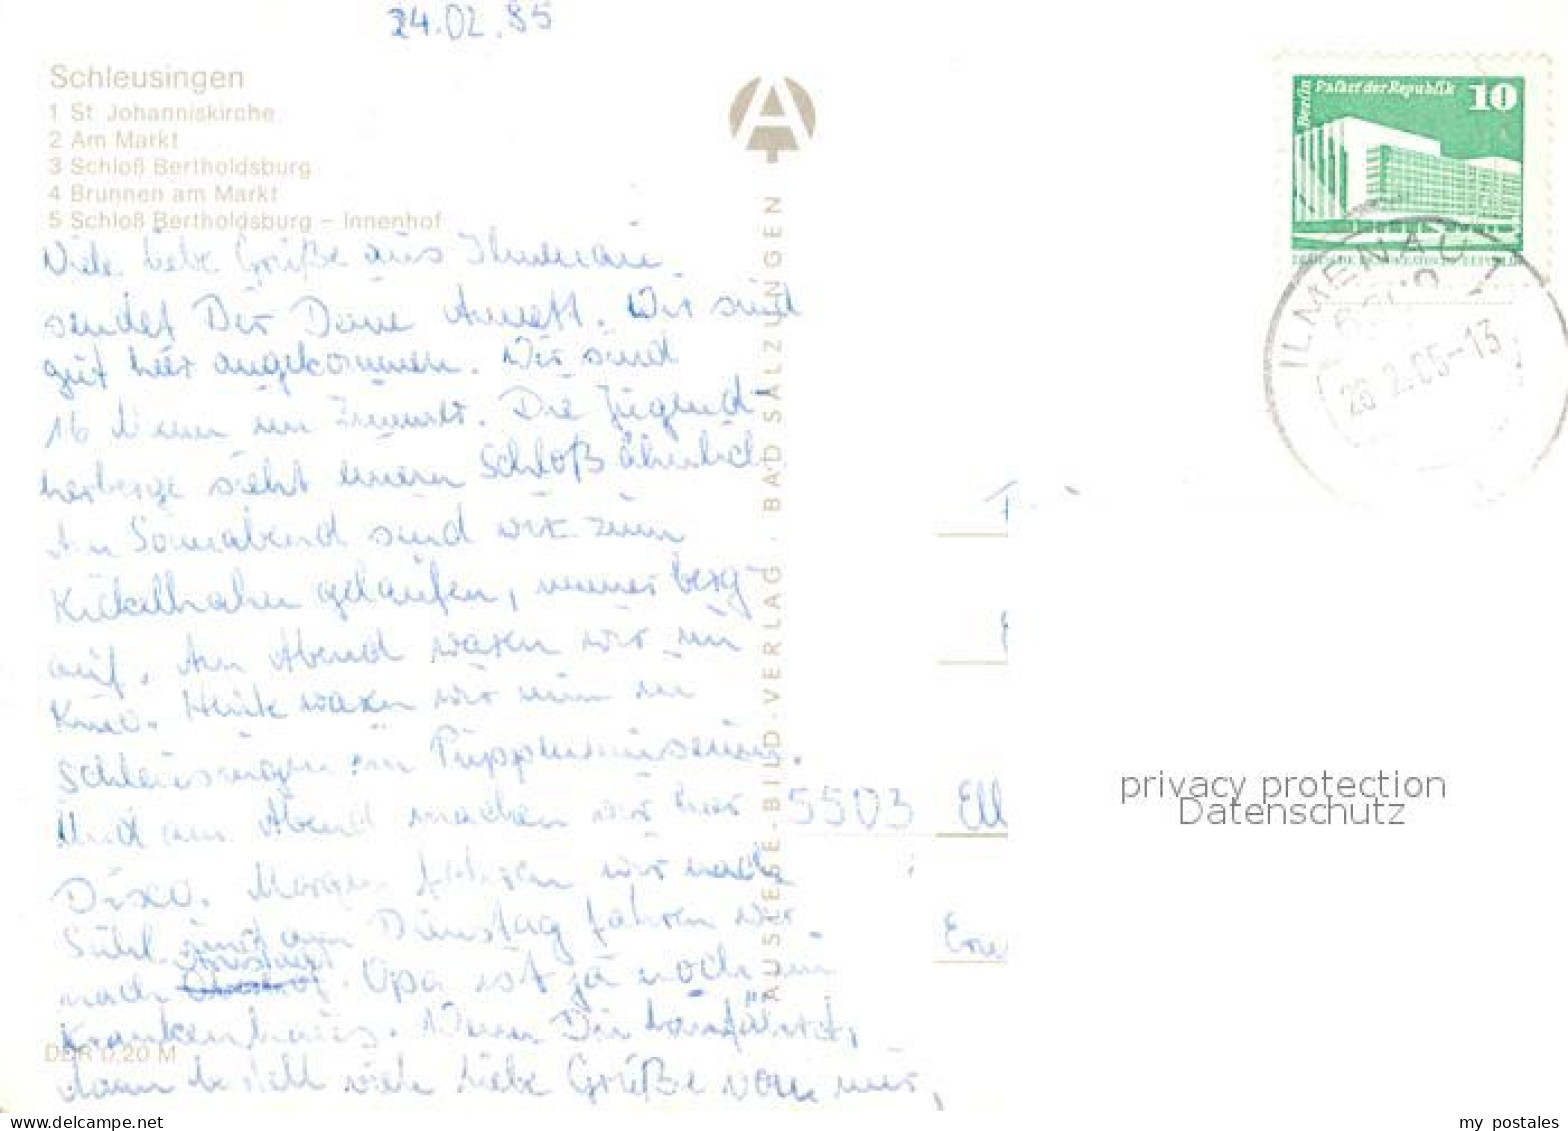 24.02.85
Schleusingen
1 St. Johanniskirche
2 Am Markt
3 Schloß Bertholdsburg
4 Brunnen am Markt
5 Schloß Bertholdsburg – Innenhof
Viele liebe Grüße aus Ilmenau
sendet Dir Deine Annett. Wir sind
gut hier angekommen. Wir sind
16 Mann im Zimmer. Die Jugend-
herberge sieht einem Schloß ähnlich.
Am Sonnabend sind wir zum
Kickelhahn gelaufen, immer berg-
auf. Am Abend waren wir im
Kino. Heute waren wir nun in
Schleusingen im Puppenmuseum.
Und am Abend machen wir hier
Disco. Morgen fahren wir nach
Suhl und am Dienstag fahren wir
nach. Opa ist ja noch im
Krankenhaus. Wenn Du hinfährst,
dann bestell viele liebe Grüße von mir,
DDR 0,20 M
AUSLESE-BILD-VERLAG · BAD SALZUNGEN
Berlin Palast der Republik 10
DEUTSCHE DEMOKRATISCHE REPUBLIK
ILMENAU 1
-13
5503 Ell
privacy protection
Datenschutz
my postales